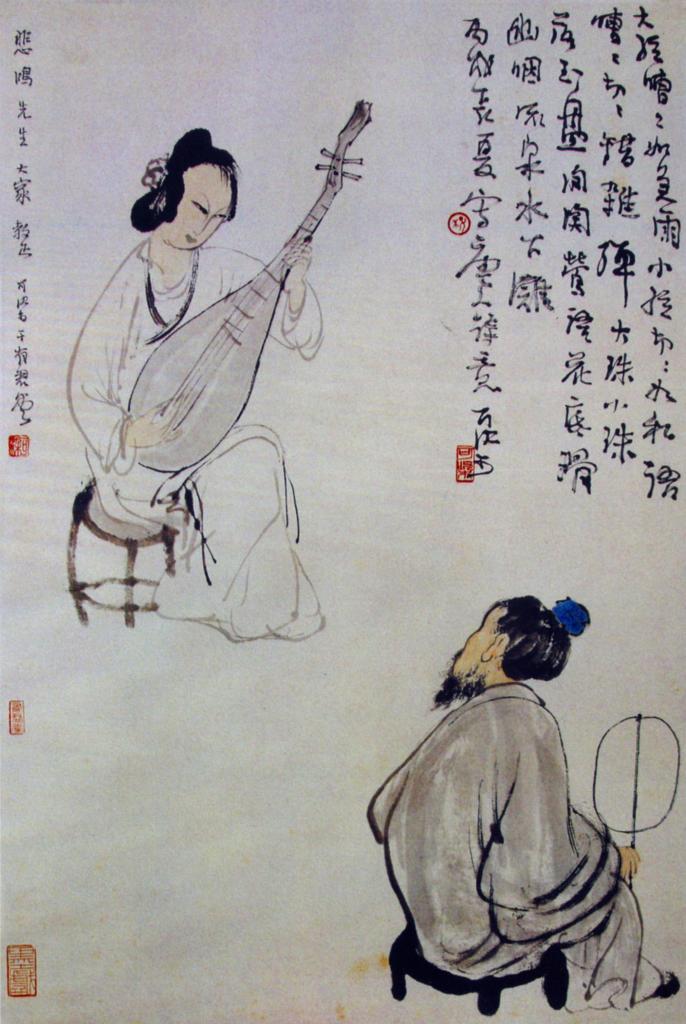 大弦嘈〻如急雨小弦切〻如私語
嘈〻切〻錯雜彈大珠小珠
落玉盤間關鶯語花底滑
幽咽流泉水下灘
丙戌長夏寫意可染
悲鴻先生大家教正可染